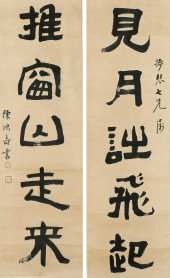 見月詩飛起
七兄
推窗山走来
陳鴻壽書